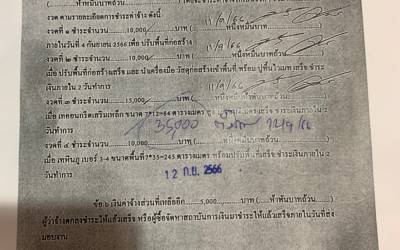 ห้าหมื่นบาทถ้วน
งวด ตามรายละเอียดการชำระค่าจ้าง ดังนี้
งวด ๑ ชำระจำนวน 10,000 /บาท (หนึ่งหมื่นบาทถ้วน 11/9/66
ภายในวันที่ 4 กันยายน 2566 เพื่อ ปรับพื้นที่ก่อสร้าง
งวดที่ ๒ ชำระจำนวน 10,000 /บาท (หนึ่งหมื่นบาทถ้วน 11/9/66
เมื่อ ปรับพื้นที่ก่อสร้างเสร็จ และ นำเครื่องมือ วัสดุก่อสร้างเข้าพื้นที่ พร้อม ปูพื้นไวเมท เสร็จ ชำระ
เงินภายใน 2 วันทำการ
งวด ๓ ชำระจำนวน 15,000 /บาท
เมื่อ เทคอนกรีตเสริมเหล็ก ขนาด 7*12=84 ตารางเมตร ชำระเงินภายใน 2
วันทำการ 35,000
งวด ๔ ชำระจำนวน 10,000 /บาท (หนึ่งหมื่นบาทถ้วน
เมื่อ เทหินภู เบอร์ 3-4 ขนาดพื้นที่ 7*35=245 ตารางเมตร พร้อมปรับพื้นที่เสร็จ ชำระเงินภายใน 2
วันทำการ 12 ก.ย. 2566
ข้อ ๖ เงินค่าจ้างส่วนที่เหลืออีก 5,000 /บาท (ห้าพันบาทถ้วน
ผู้ว่าจ้างตกลงชำระให้แล้วเสร็จ หรือผู้ซื้อจัดหาสถาบันการเงินมาชำระให้แล้วเสร็จภายในวันที่ส่ง
มอบงาน